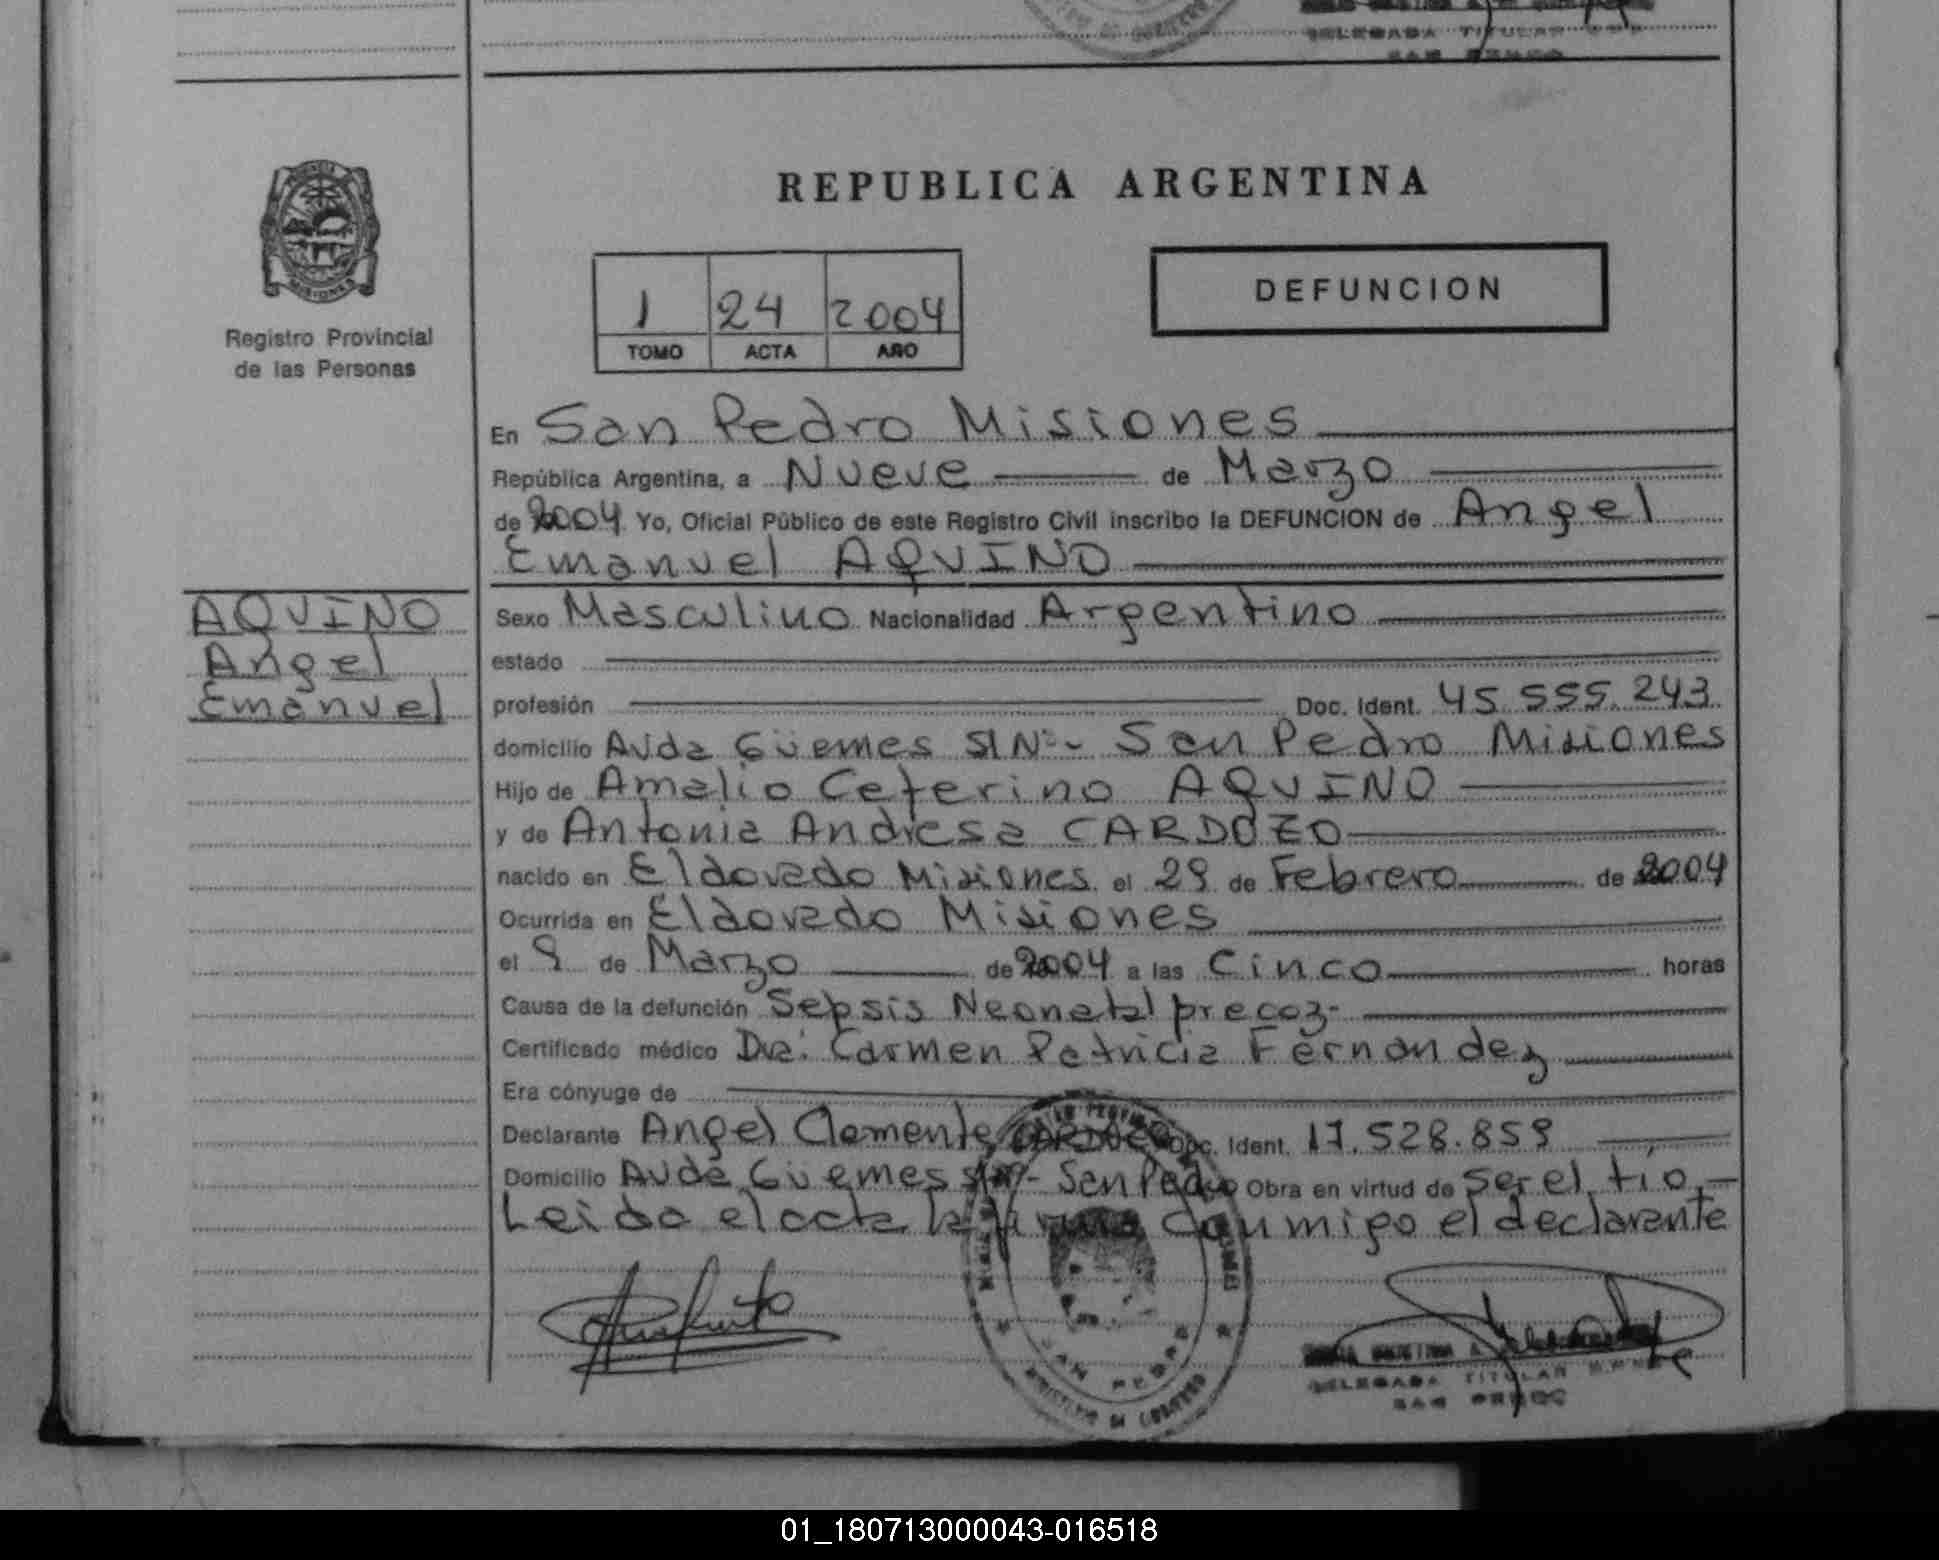 DELEGADA TITULAR
SAN PEDRO
MISIONES
Registro Provincial
de las Personas
REPUBLICA ARGENTINA
1 24 2004
TOMO ACTA AÑO
DEFUNCION
En San Pedro Misiones
República Argentina, a Nueve de Marzo
de 2004 Yo, Oficial Público de este Registro Civil inscribo la DEFUNCION de Angel
Emanuel AQUINO
AQUINO
Angel
Emanuel
Sexo Masculino Nacionalidad Argentino
estado
profesión Doc. Ident. 45.555.243
domicilio Avda Güemes S/Nº- San Pedro Misiones
Hijo de Amalio Ceferino AQUINO
y de Antonia Andresa CARDOZO
nacido en Eldorado Misiones el 29 de Febrero de 2004
Ocurrida en Eldorado Misiones
el 9 de Marzo de 2004 a las Cinco horas
Causa de la defunción Sepsis Neonatal precoz-
Certificado médico Dra: Carmen Patricia Fernandez
Era cónyuge de
Declarante Angel Clemente CARDOZO Doc. Ident. 17.528.859
Domicilio Avda Güemes S/Nº- San Pedro Obra en virtud de ser el tío.-
Leida el acta la firma conmigo el declarante
SAN PEDRO
MINISTERIO DE GOBIERNO
DELEGADA TITULAR
SAN PEDRO
01_180713000043-016518